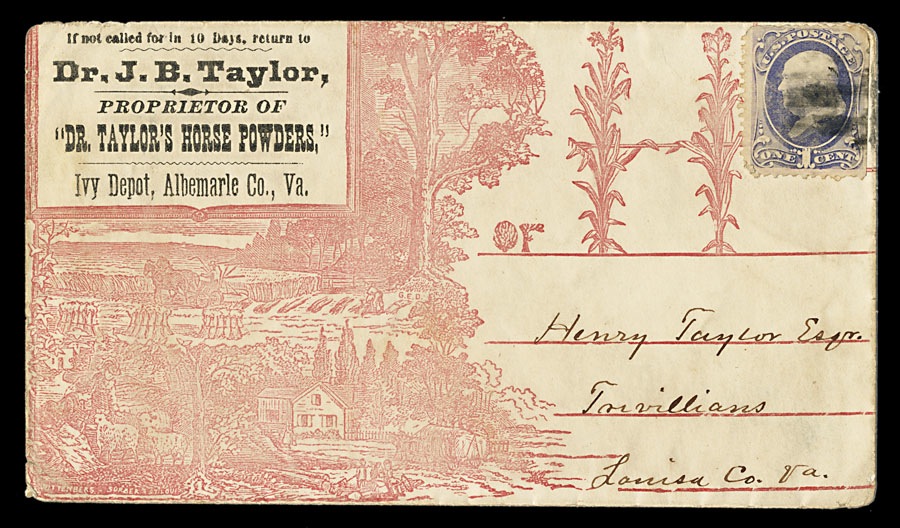 If not called for in 10 Days, return to
Dr. J. B. Taylor,
PROPRIETOR OF
"DR. TAYLOR'S HORSE POWDERS,"
Ivy Depot, Albemarle Co., Va.
U.S. POSTAGE
ONE 1 CENT
OF
H
Henry Taylor Esqr.
Trevillians
Louisa Co. Va.